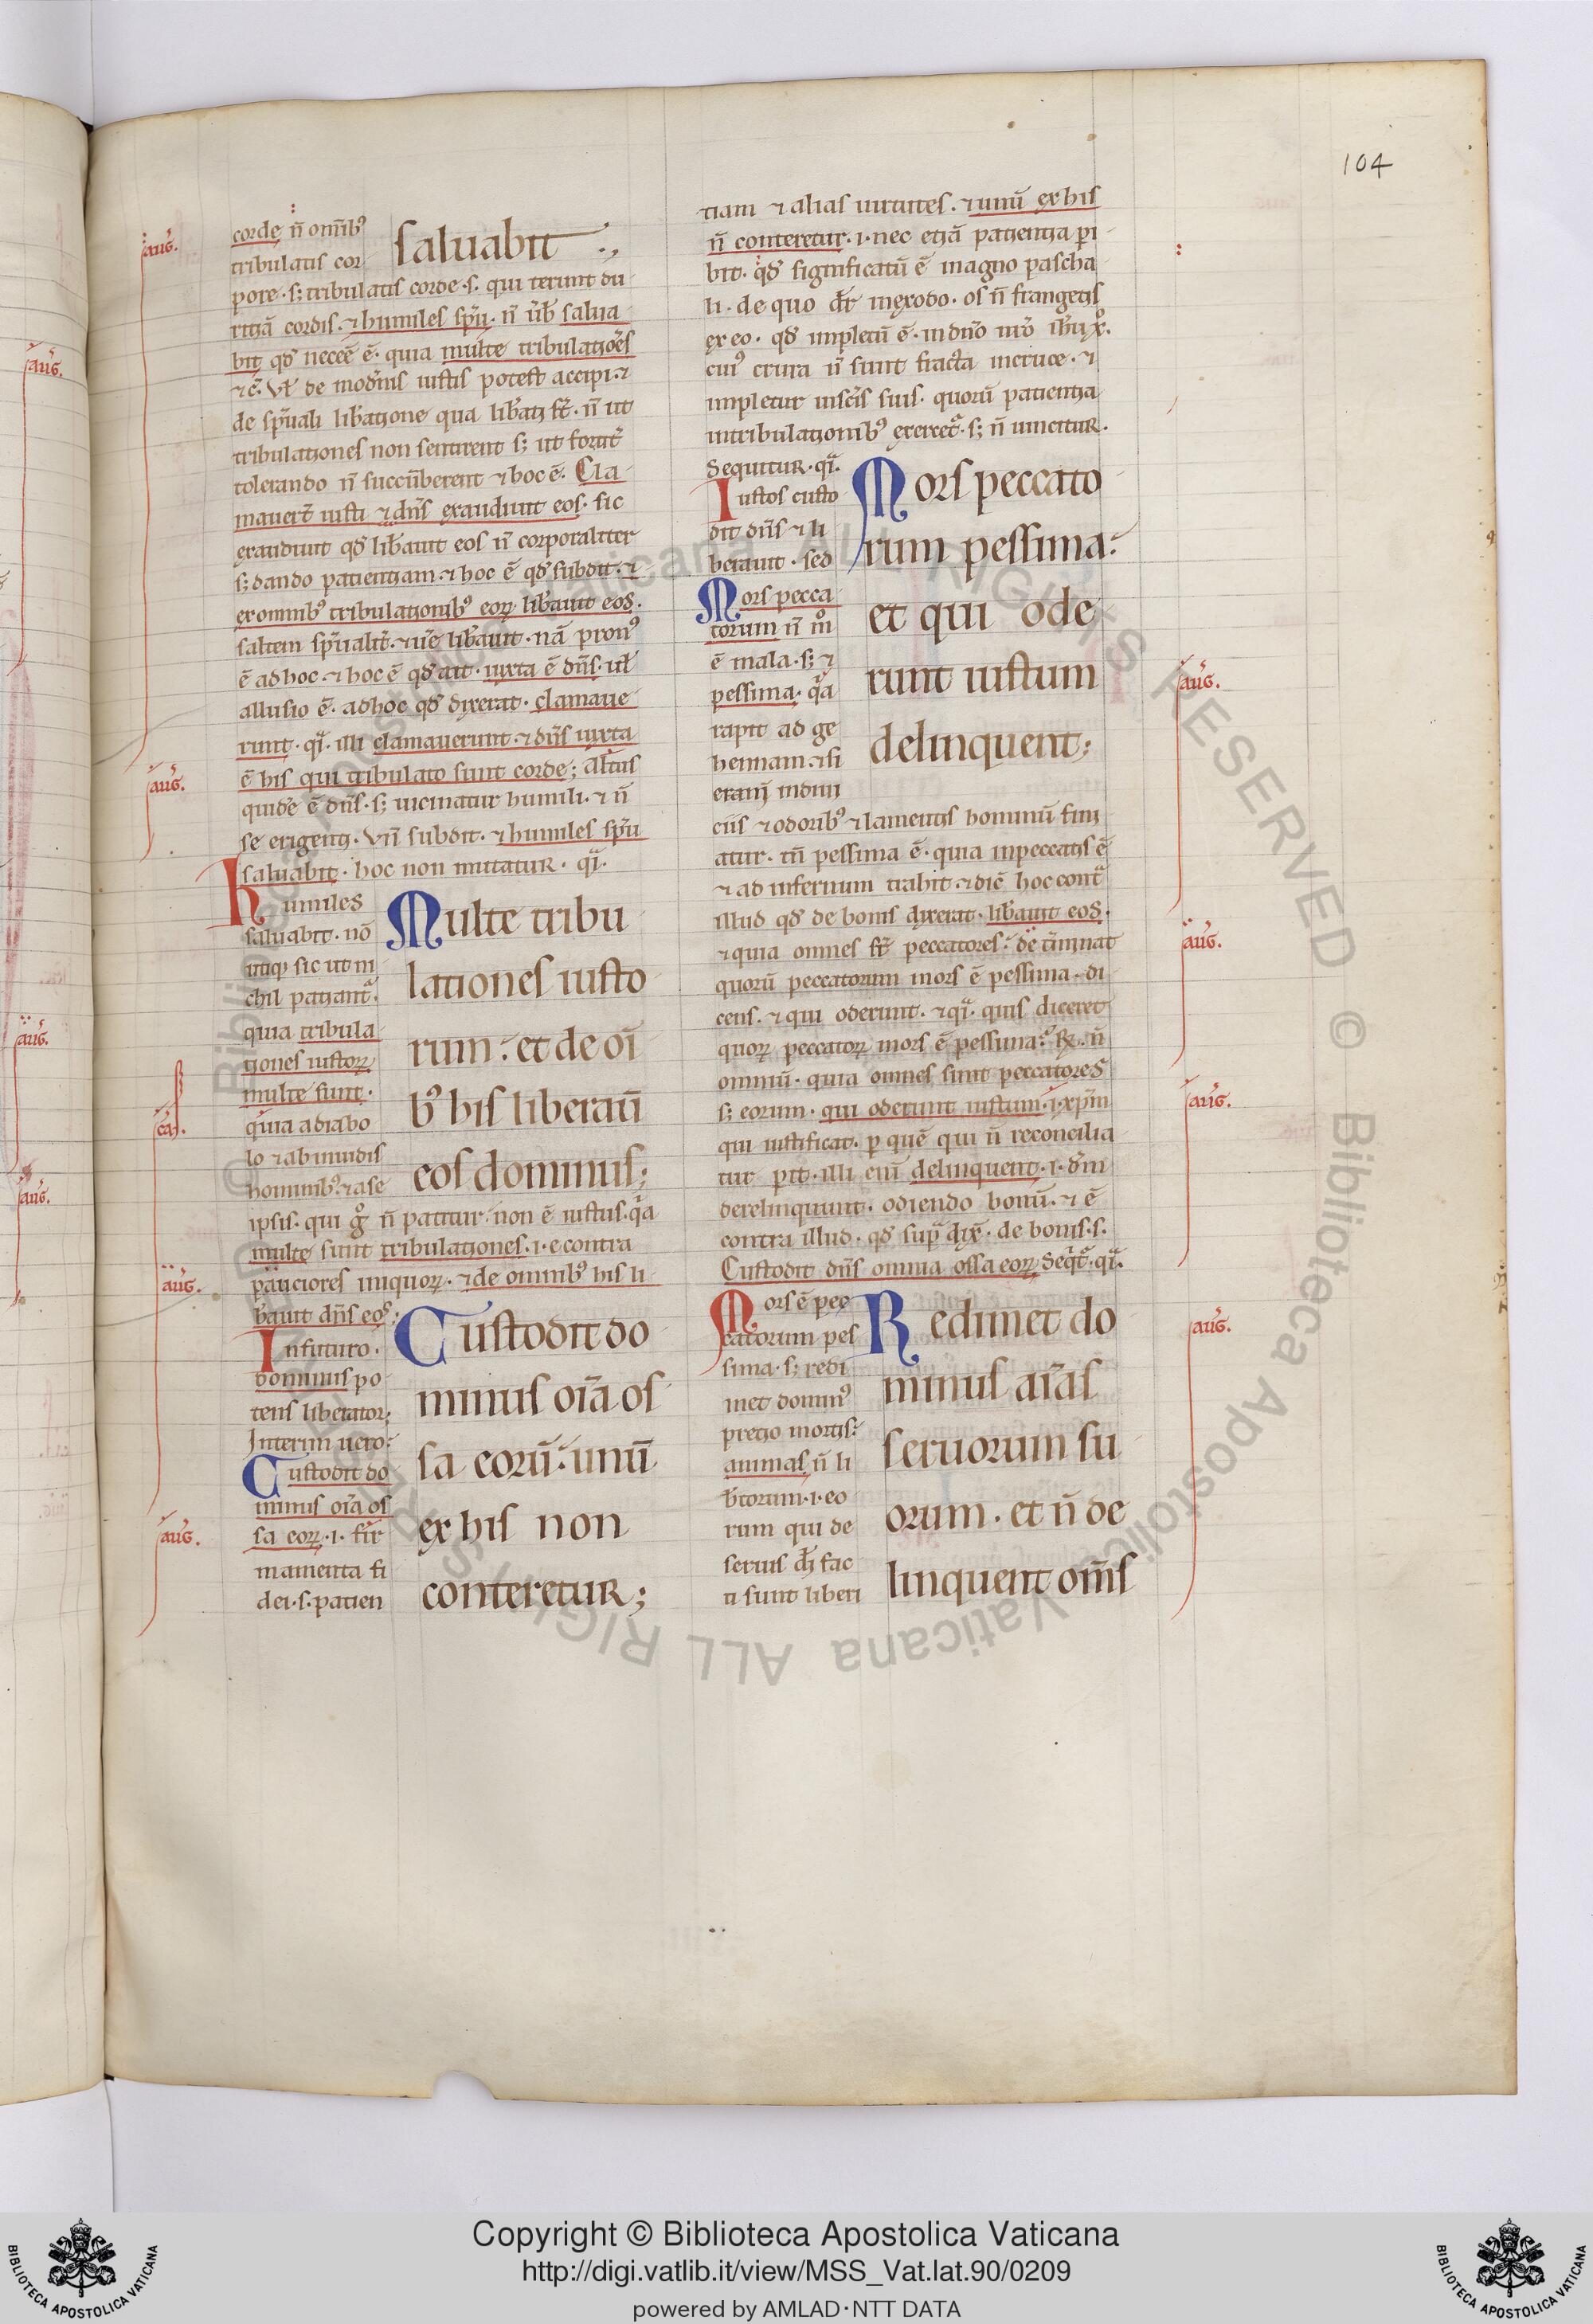 104
corde n̄ om̄ib⁹
tribulatis cor
saluabit
pore · s; tribulatis corde · s. qui terunt du
ritiā cordis. ⁊ humiles sp̄u · n̄ ūb̄ salua
bit qđ necc̄e ē · quia multe tribulatiōes
⁊c̄. Vl̄ de modernis iustis potest accipi · ⁊
de sp̄uali lib̄atione qua lib̄ati st̄ · n̄ ut
tribulationes non sentirent s; ut fortit̄
tolerando n̄ succūberent ⁊ hoc ē. Cla
mauer̄t iusti ⁊ dn̄s exaudiuit eos · sic
exaudiuit qđ lib̄auit eos n̄ corporaliter
s; dando patientiam · ⁊ hoc ē qđ subdit · ⁊
ex omnib⁹ tribulationib⁹ eoꝝ lib̄auit eos.
saltem sp̄ualit̄ · ⁊ uēe lib̄auit · nā pron⁹
ē ad hoc · ⁊ hoc ē qđ ait · iuxta ē dn̄s · ul̄
allusio ē · ad hoc qđ dixerat · clamaue
runt · q̄i · illi clamauerunt · ⁊ dn̄s iuxta
ē his qui tribulato sunt corde; altus
quidē ē dn̄s · s; uicinatur humili · ⁊ n̄
se erigenti. Vn̄ subdit · ⁊ humiles sp̄u
saluabit · hoc non mutatur · q̄i.
Humiles
saluabit · nō
utiq; sic ut ni
chil patiant̄.
quia tribula
tiones iustoꝝ
multe sunt ·
quia a diabo
lo ⁊ ab inuidis
hominib⁹ · ⁊ a se
Multe tribu
lationes iusto
rum : et de oī
b⁹ his liberaū
eos dominus;
ipsis · qui g̊ n̄ patitur · non ē iustus · q̄a
multe sunt tribulationes · i · econtra
pauciores iniquoꝝ · ⁊ de omnib⁹ his li
b̄auit dn̄s eos:
In futuro ·
dominus po
tens liberator;
Interim uero:
Custodit do
minus oīa os
sa eoꝝ · i · fir
mamenta fi
dei · s · patien
Custodit do
minus oīa os
sa eorū : unū
ex his non
conteretur;
tiam ⁊ alias uirtutes · ⁊ unū ex his
n̄ conteretur · i · nec etiā patientia p̱i
bit · qđ significatū ē in agno pascha
li · de quo dr̄ in exodo · os n̄ frangetis
ex eo · qđ impletū ē · in dn̄o nr̄o ih̄u xp̄o.
cui⁹ crura n̄ sunt fracta in cruce · ⁊
impletur in sc̄is suis · quorū patientia
in tribulationib⁹ exercet̄ · s; n̄ uincitur.
Sequitur · q̄i.
Iustos custo
dit dn̄s ⁊ li
berauit · sed
Mors pecca
torum n̄ m̊
ē mala · s; ⁊
pessima · q̄a
rapit ad ge
hennam · ⁊ si
etiam̄ in diui
Mors peccato
rum pessima:
et qui ode
runt iustum
delinquent;
ciis ⁊ odorib⁹ ⁊ lamentis hominū fini
atur · tn̄ pessima ē · quia in peccatis ē
⁊ ad infernum trahit · ⁊ dic̄ hoc cont̄
illud qđ de bonis dixerat · lib̄auit eos.
⁊ quia omnes st̄ peccatores: det̄minat
quorū peccatorum mors ē pessima · di
cens · ⁊ qui oderunt · ⁊ q̄i · quis diceret
quoꝝ peccatoꝝ mors ē pessima? R̄ · n̄
omniū · quia omnes sunt peccatores
s; eorum · qui oderunt iustum · i · xp̄m
qui iustificat · p̱ quē qui n̄ reconcilia
tur p̱it · illi enī delinquent · i · dm̄
derelinquunt · odiendo bonū · ⁊ ē
contra illud · qđ sup̄ dix̄ · de bonis · s.
Custodit dn̄s omnia ossa eoꝝ Seq̄t̄ · q̄i.
Mors ē pec
catorum pes
sima · s; redi
met domin⁹
precio mortis:
animas n̄ li
b̄torum · i · eo
rum qui de
seruis di fac
ti sunt liberi
Redimet do
minus aīas
seruorum su
orum · et n̄ de
linquent om̄s
aug.
aug.
aug.
aug.
caſ.
aug.
aug.
aug.
aug.
aug.
aug.
aug.
aug.
© Biblioteca Apostolica Vaticana ALL RIGHTS RESERVED
Copyright © Biblioteca Apostolica Vaticana
http://digi.vatlib.it/view/MSS_Vat.lat.90/0209
powered by AMLAD · NTT DATA
BIBLIOTECA APOSTOLICA VATICANA
BIBLIOTECA APOSTOLICA VATICANA